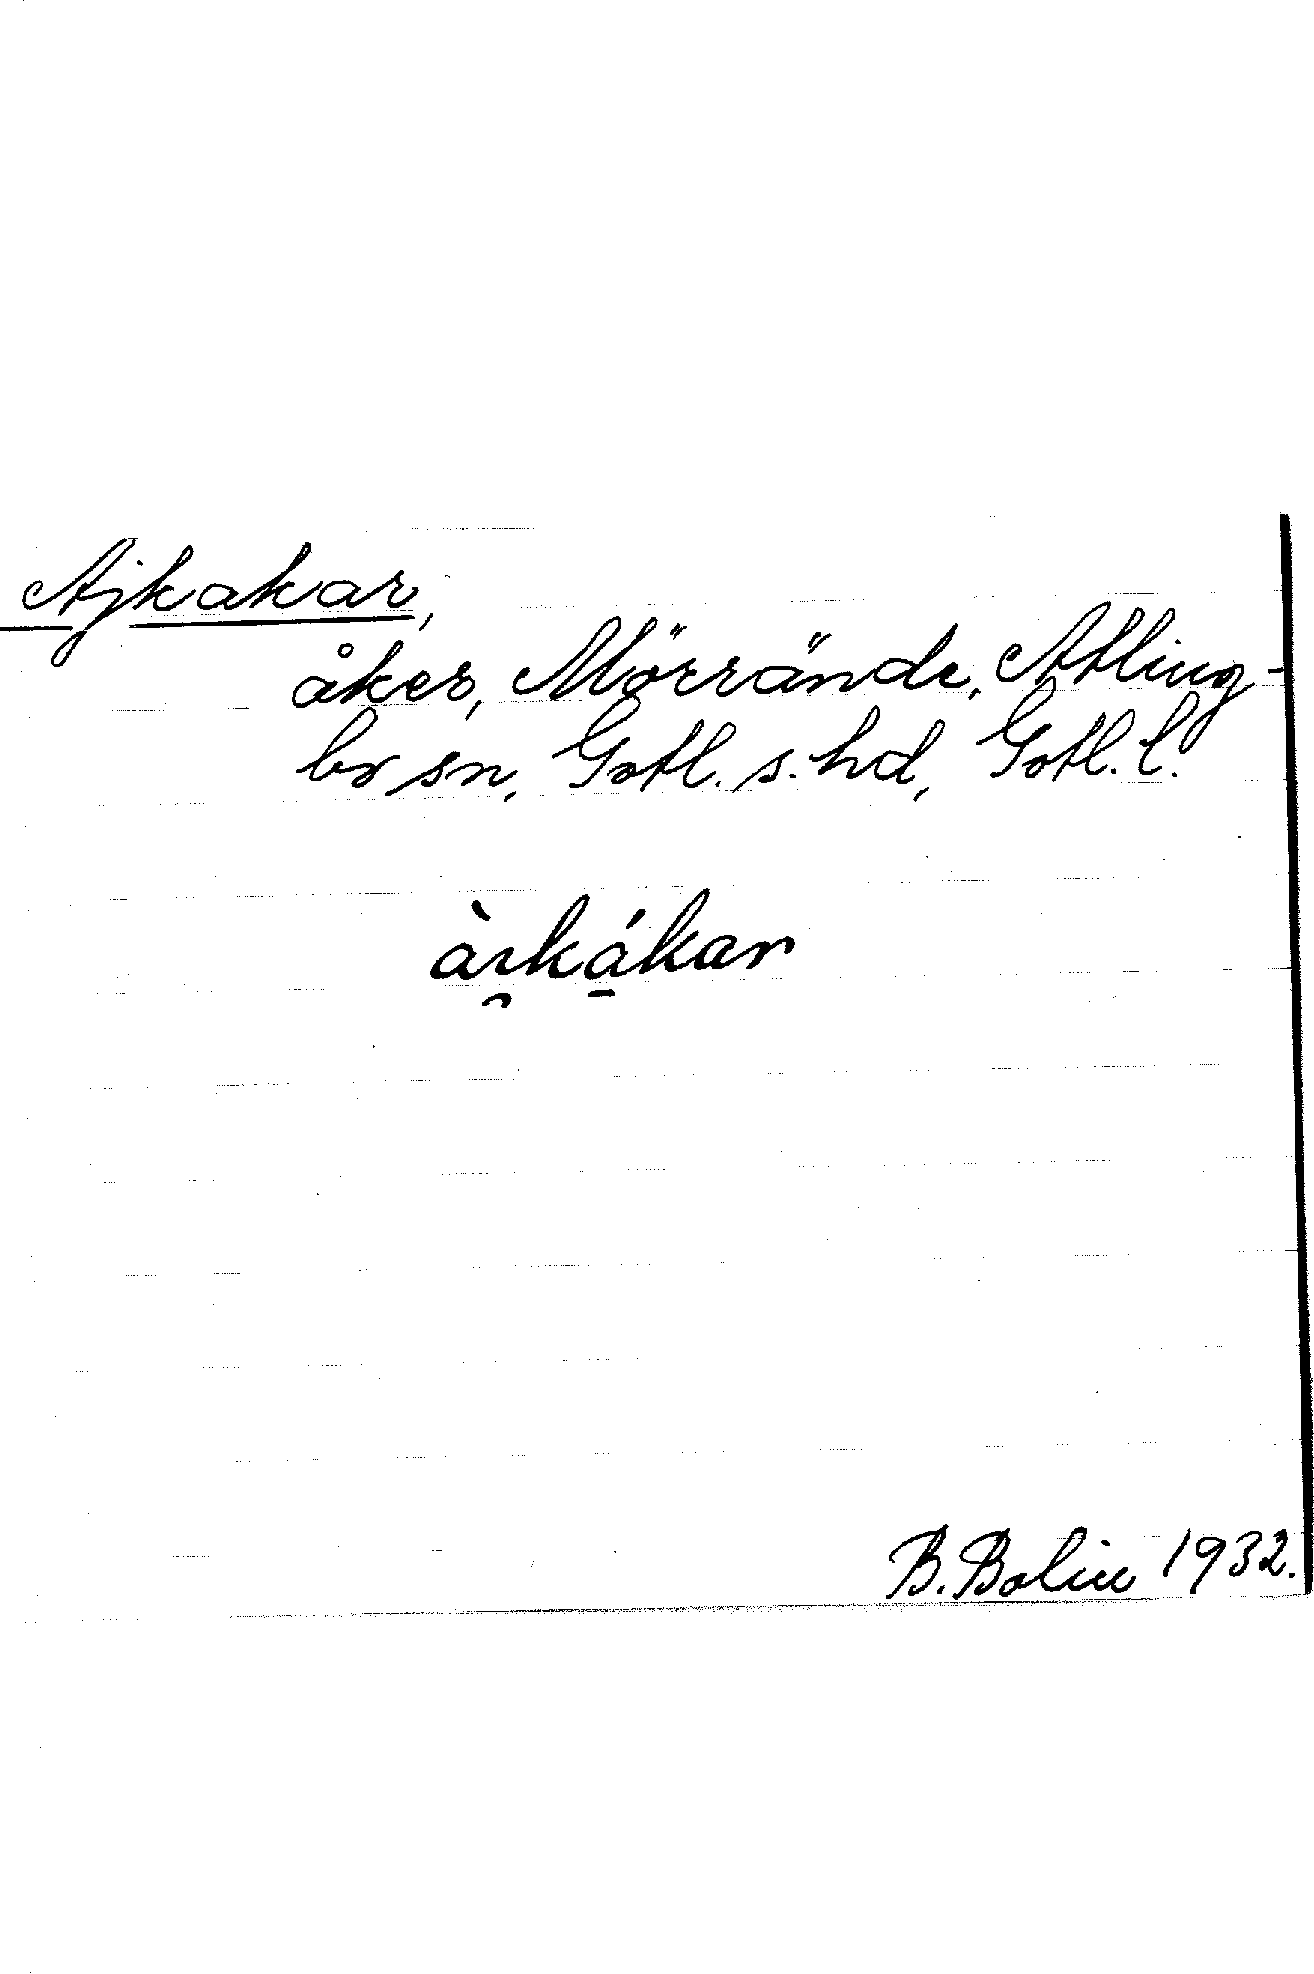 Ajkakar,
åker, Mörrände, Atling-
bo sn, Gotl. s. hd, Gotl. l.
àı̯ká̠kar
B. Bolin 1932.